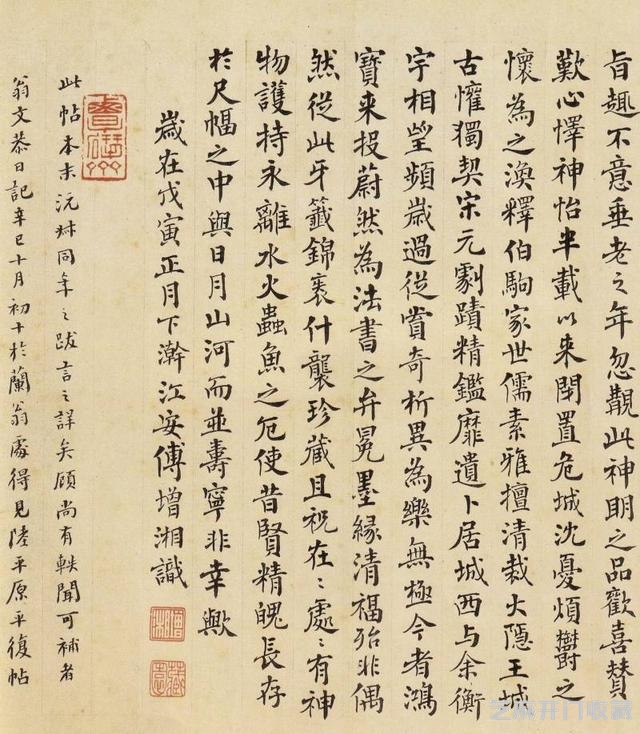 旨趣不意垂老之年忽覩此神明之品歡喜贊
歎心懌神怡半載以來閉置危城沈憂煩鬱之
懷為之渙釋伯駒家世儒素雅擅清裁大隱王城
古懽獨契宋元劇蹟精鑑靡遺卜居城西与余衡
宇相望頻歲過從賞奇析異為樂無極今者鴻
寶來投蔚然為法書之弁冕墨緣清福殆非偶
然從此牙籤錦裹什襲珍藏且祝在:處:有神
物護持永離水火蟲魚之厄使昔賢精魄長存
於尺幅之中與日月山河而並壽寧非幸歟
歲在戊寅正月下澣江安傅增湘識
增湘
藏園
此帖本末沅叔同年之跋言之詳矣顧尚有軼聞可補者
翁文恭日記辛巳十月初十於蘭翁處得見陸平原平復帖
芝麻开门收藏